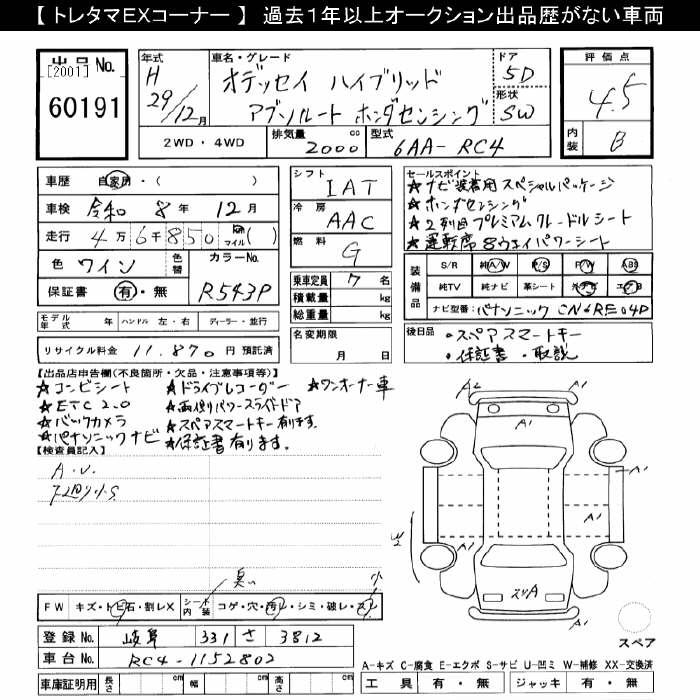 【 トレタマEXコーナー 】 過去１年以上オークション出品歴がない車両
出品No.
[2001]
60191
年式 H 29/12月
車名・グレード オデッセイ ハイブリッド
アブソルート ホンダセンシング
ドア 5D
形状 SW
評価点 4.5
内装 B
2WD・4WD 排気量 2000 cc 型式 6AA-RC4
車歴 自家用・( )
車検 令和 8年 12月
走行 4万6千850 km マイル ( )
色 ワイン 色替 カラーNo. R543P
保証書 有・無
モデル年式 年 ハンドル 左・右 ディーラー・並行
リサイクル料金 11,870 円 預託済
シフト IAT
冷房 AAC
燃料 G
乗車定員 7 名
積載量 kg
総重量 kg
名変期限 月 日
セールスポイント
★ナビ装着用スペシャルパッケージ
★ホンダセンシング
★2列目プレミアムクレードルシート
★運転席8ウェイパワーシート
装備品 S/R 純A/W P/S P/W ABS
純TV 純ナビ 革シート 外ナビ エアB
ナビ型番( パナソニック CN6RE04D )
後日品 ・スペアスマートキー
・保証書・取説
【出品店申告欄(不良箇所・欠品・注意事項等)】
★コンビシート ★ドライブレコーダー ★ワンオーナー車
★ETC2.0 ★両側パワースライドドア
★バックカメラ ★スペアスマートキー有ります.
★パナソニックナビ ★保証書有ります.
【検査員記入】
A.U.
下廻り小S
臭い 小
FW キズ・トビ石・割レX シート内装 コゲ・穴・汚レ・シミ・破レ・スレ
登録No. 岐阜 331 さ 3812
車台No. RC4-1152802
車庫証明用 長さ cm 幅 cm 高さ cm
A2 A1
A1
A1
A1
A1
ズリA
スペア
A-キズ C-腐食 E-エクボ S-サビ U-凹ミ W-補修 XX-交換済
工具 有・無 ジャッキ 有・無